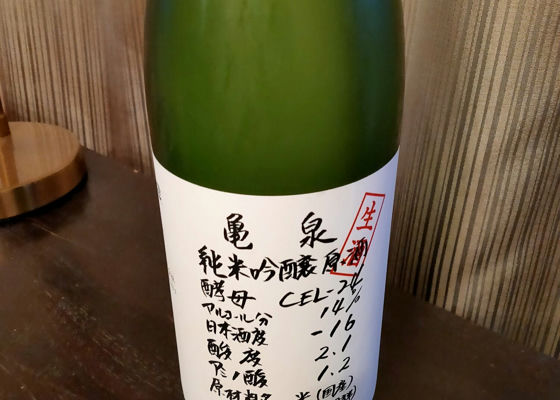 亀泉
生酒
純米吟醸原酒
酵母 CEL-24
アルコール分 14%
日本酒度 -16
酸度 2.1
アミノ酸 1.2
原材料名 米(国産)